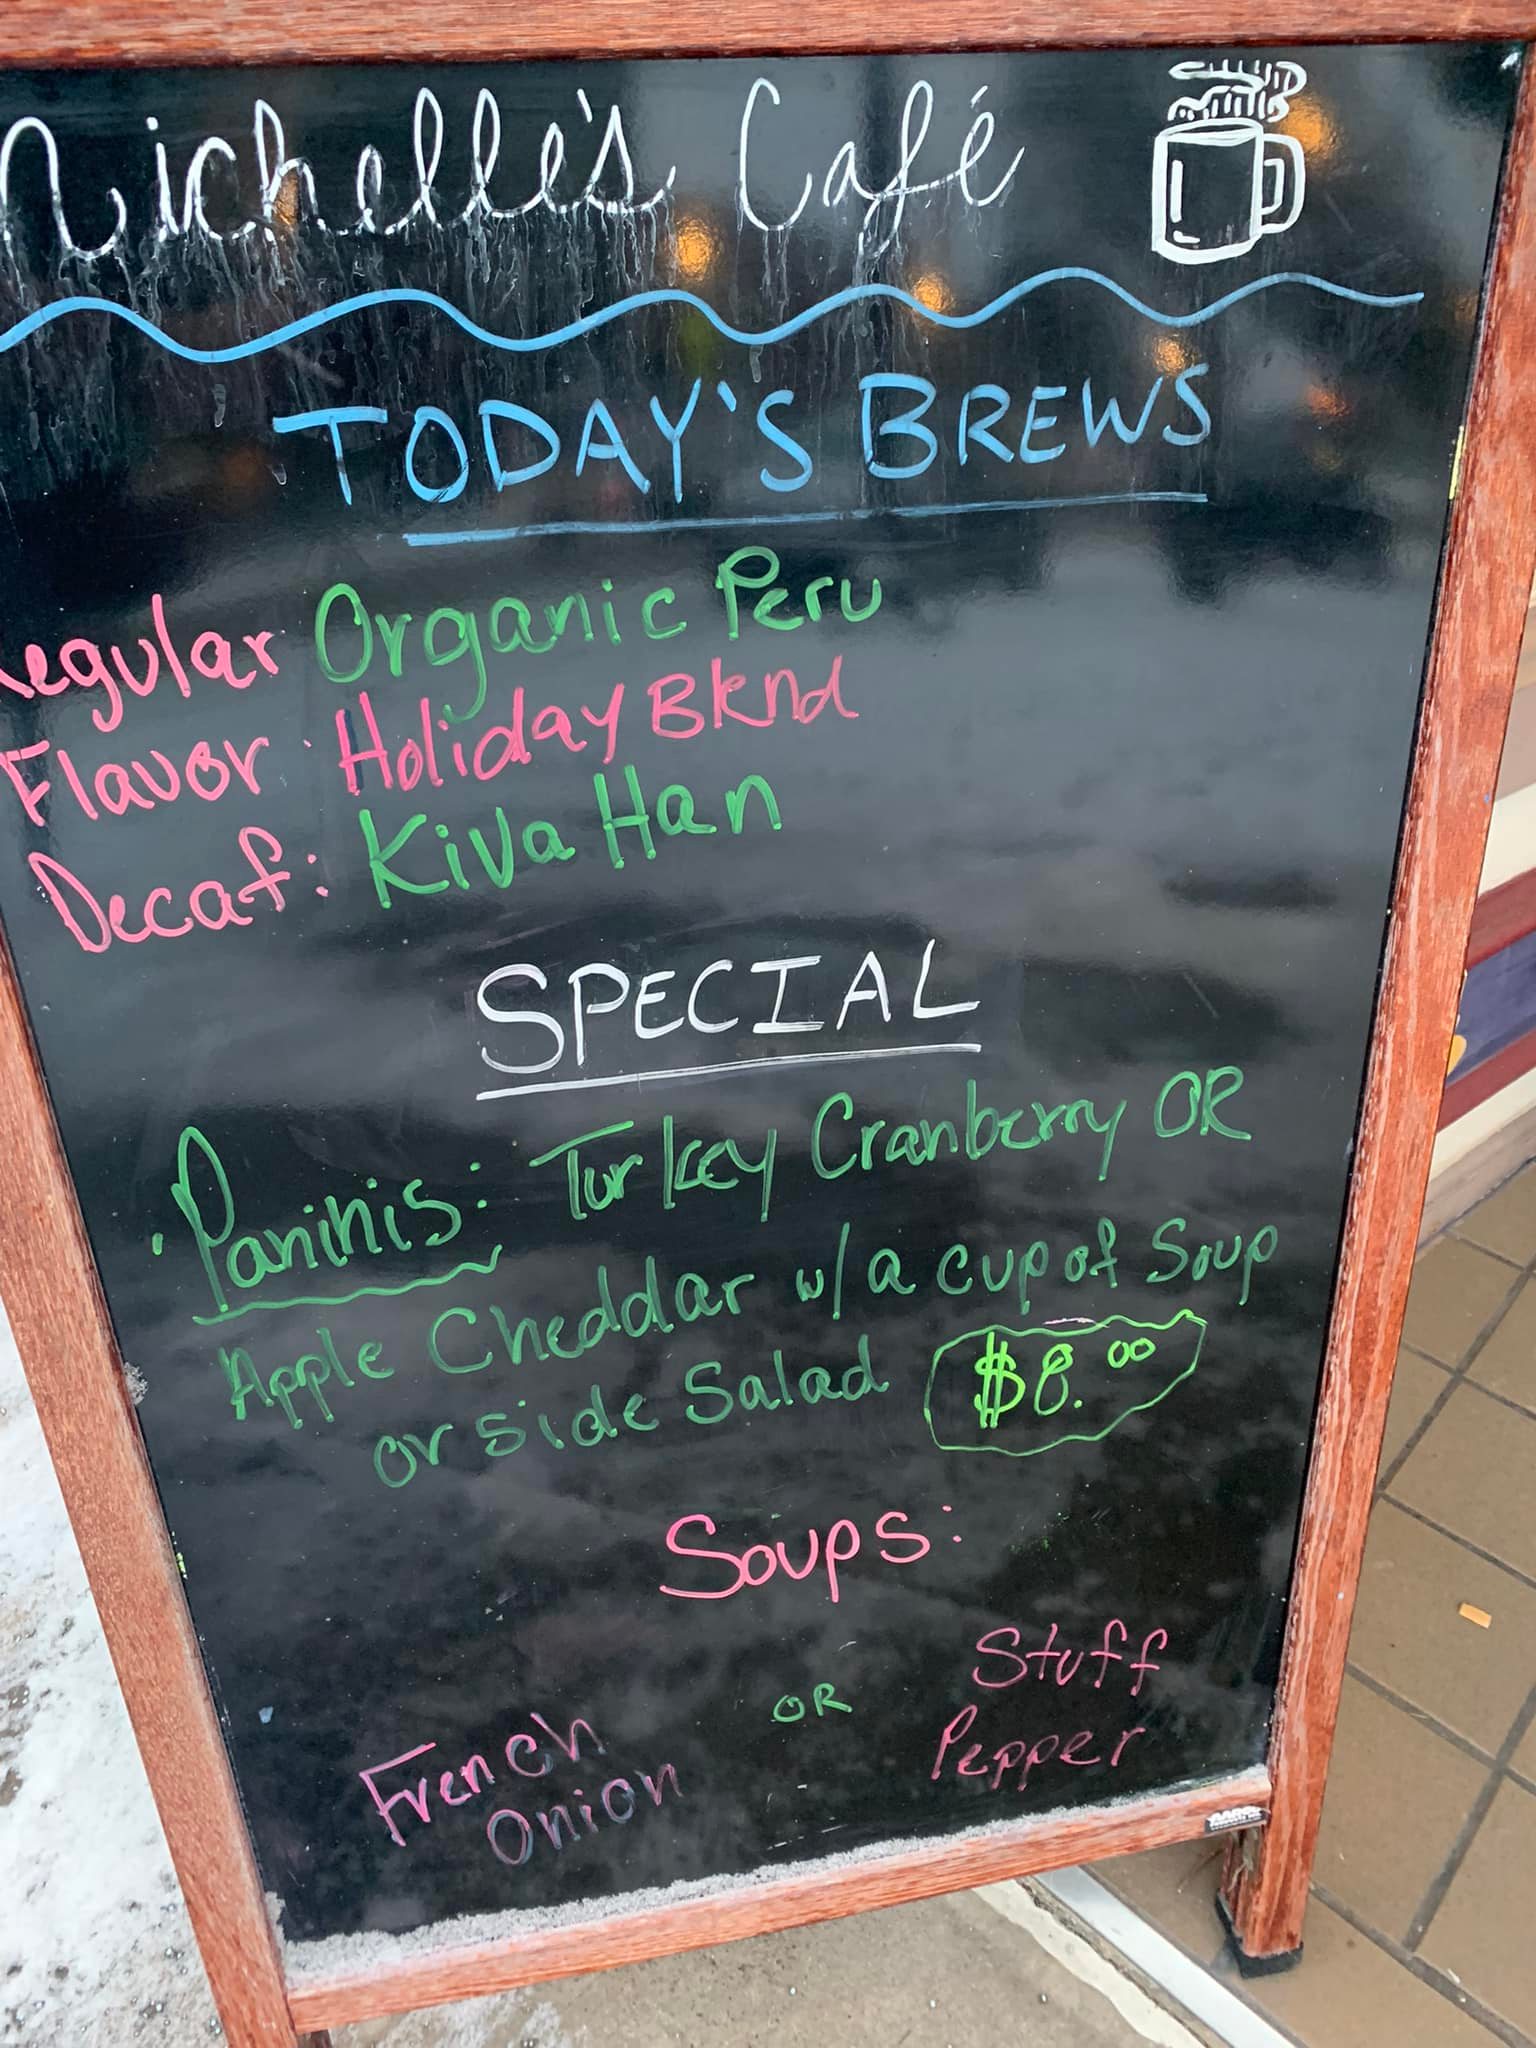 Michelle's Café
TODAY'S BREWS
Regular Organic Peru
Flavor: Holiday Blend
Decaf: Kiva Han
SPECIAL
Paninis: Turkey Cranberry OR
Apple Cheddar w/a cup of Soup
or side Salad $8.00
Soups:
French Onion
OR
Stuff Pepper